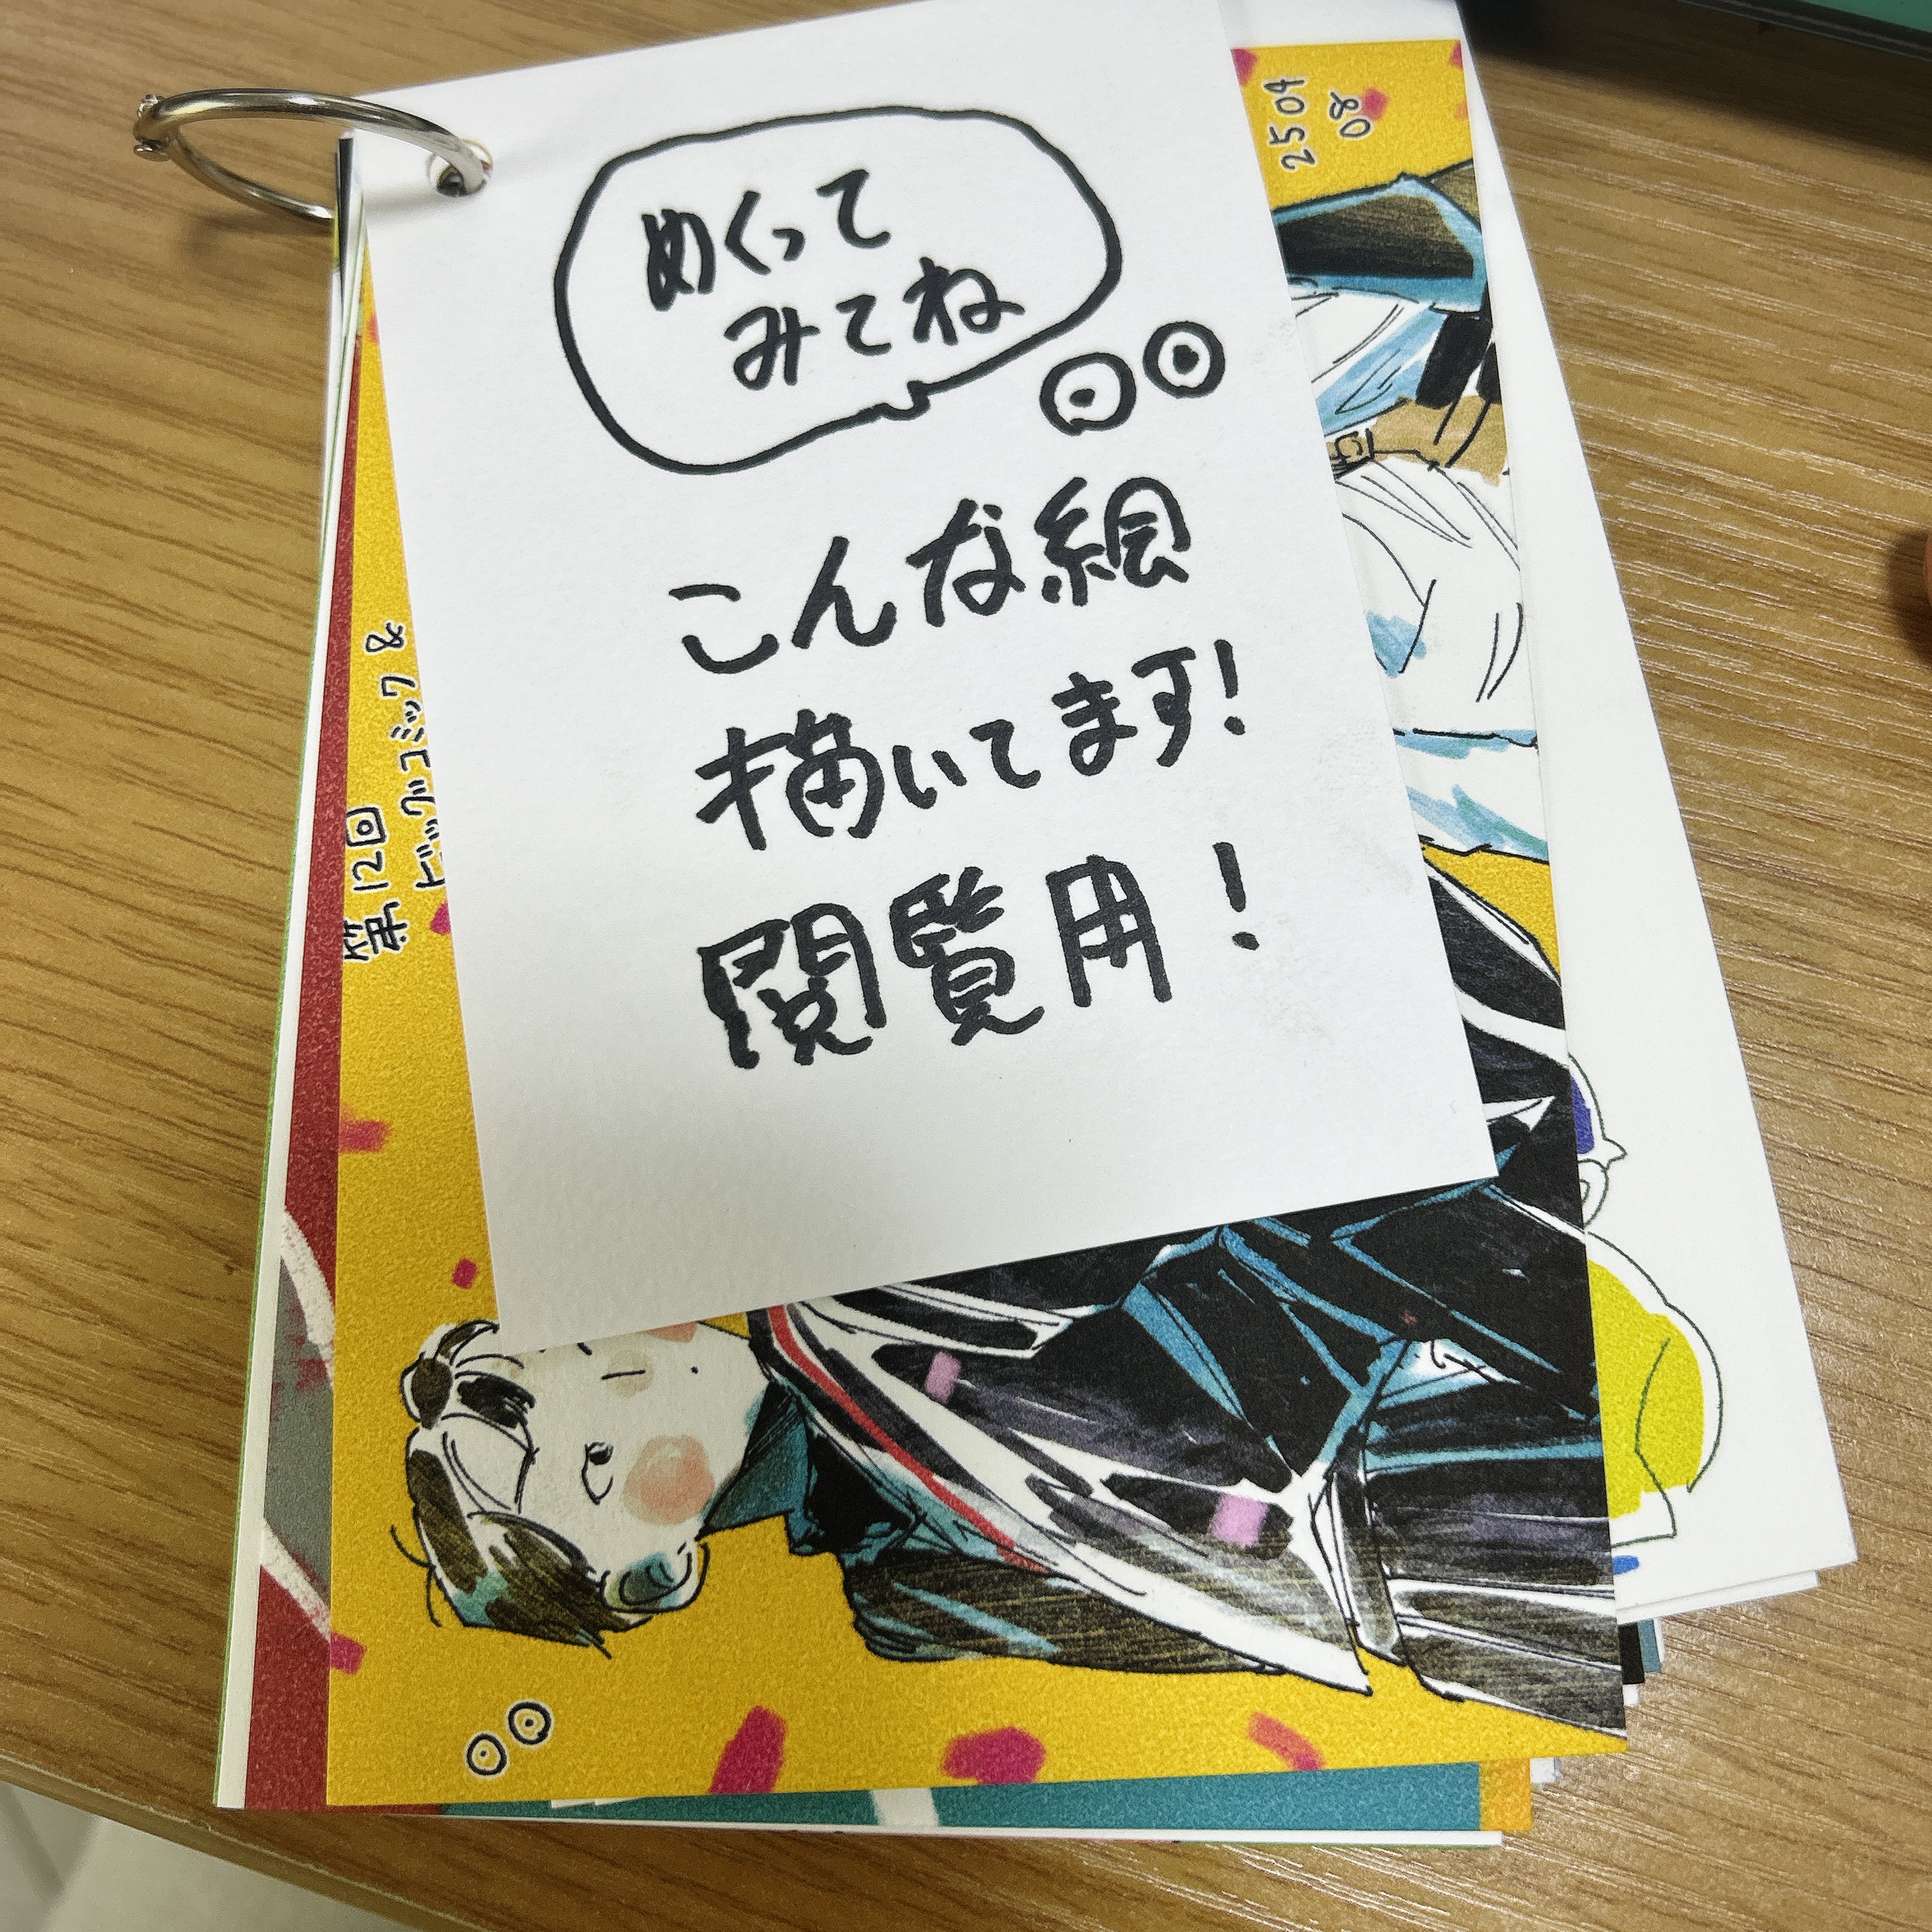 めくって
みてね
こんな絵
描いてます!
閲覧用!
2504
08
第12回
ビッグコミック&